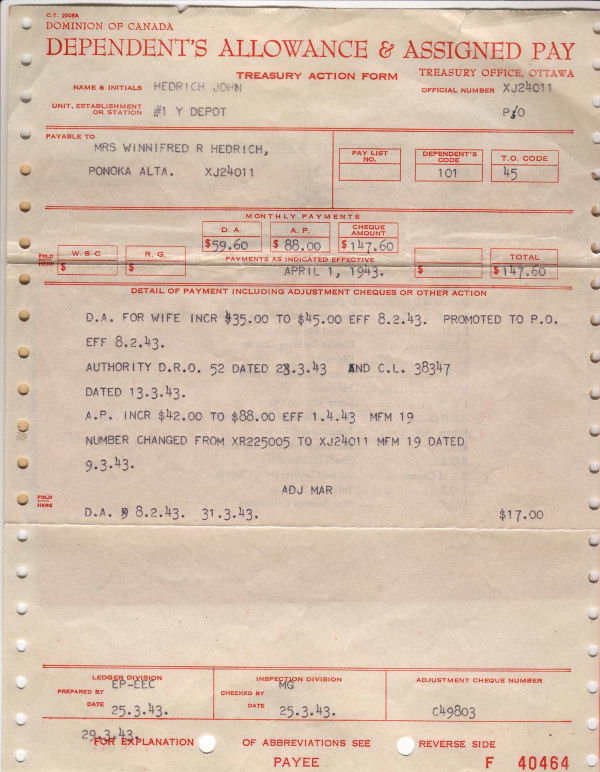 C.T. 2008A
DOMINION OF CANADA
DEPENDENT'S ALLOWANCE & ASSIGNED PAY
TREASURY ACTION FORM TREASURY OFFICE, OTTAWA
NAME & INITIALS HEDRICH JOHN OFFICIAL NUMBER XJ24011
UNIT, ESTABLISHMENT OR STATION #1 Y DEPOT P/O
PAYABLE TO
MRS WINNIFRED R HEDRICH,
PONOKA ALTA. XJ24011
PAY LIST NO. DEPENDENT'S CODE T.O. CODE
101 45
MONTHLY PAYMENTS
D. A. A. P. CHEQUE AMOUNT
$59.60 $88.00 $147.60
FOLD HERE W. S. C R. G. PAYMENTS AS INDICATED EFFECTIVE TOTAL
$ $ APRIL 1, 1943. $ $147.60
DETAIL OF PAYMENT INCLUDING ADJUSTMENT CHEQUES OR OTHER ACTION
D.A. FOR WIFE INCR $35.00 TO $45.00 EFF 8.2.43. PROMOTED TO P.O.
EFF 8.2.43.
AUTHORITY D.R.O. 52 DATED .3.43 AND C.L. 38347
DATED 13.3.43.
A.P. INCR $42.00 TO $88.00 EFF 1.4.43 MFM 19
NUMBER CHANGED FROM XR225005 TO XJ24011 MFM 19 DATED
9.3.43.
ADJ MAR
FOLD HERE
D.A. 8.2.43. 31.3.43. $17.00
LEDGER DIVISION INSPECTION DIVISION ADJUSTMENT CHEQUE NUMBER
PREPARED BY EP-EEC CHECKED BY MG
DATE 25.3.43. DATE 25.3.43. C49803
29.3.43.
FOR EXPLANATION OF ABBREVIATIONS SEE REVERSE SIDE
PAYEE F 40464